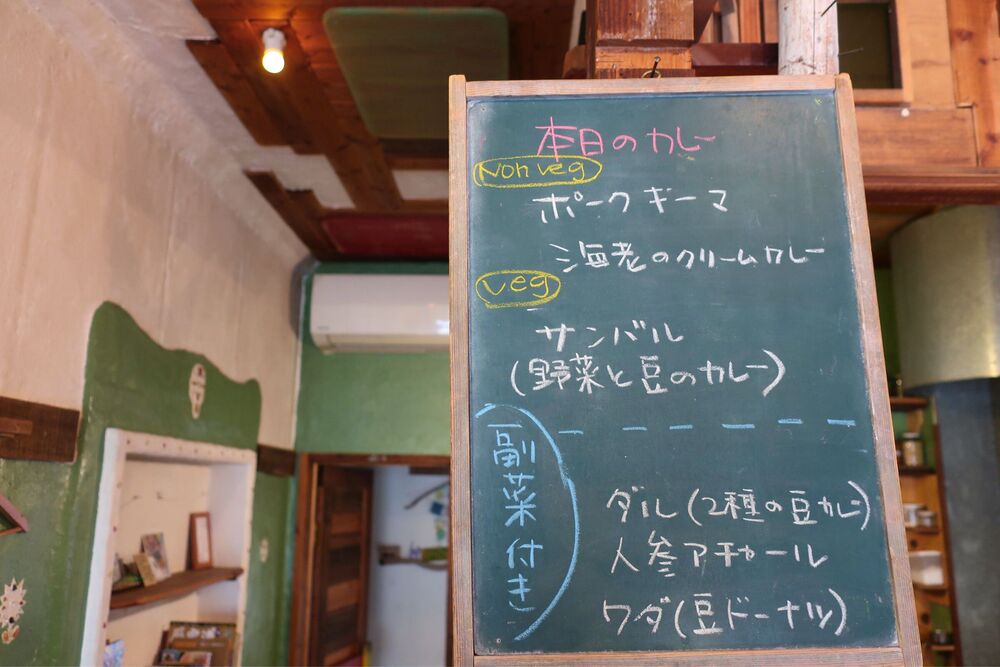 本日のカレー
Non veg
ポークキーマ
海老のクリームカレー
veg
サンバル
(野菜と豆のカレー)
副菜付き
ダル(2種の豆カレー)
人参アチャール
ワダ(豆ドーナツ)